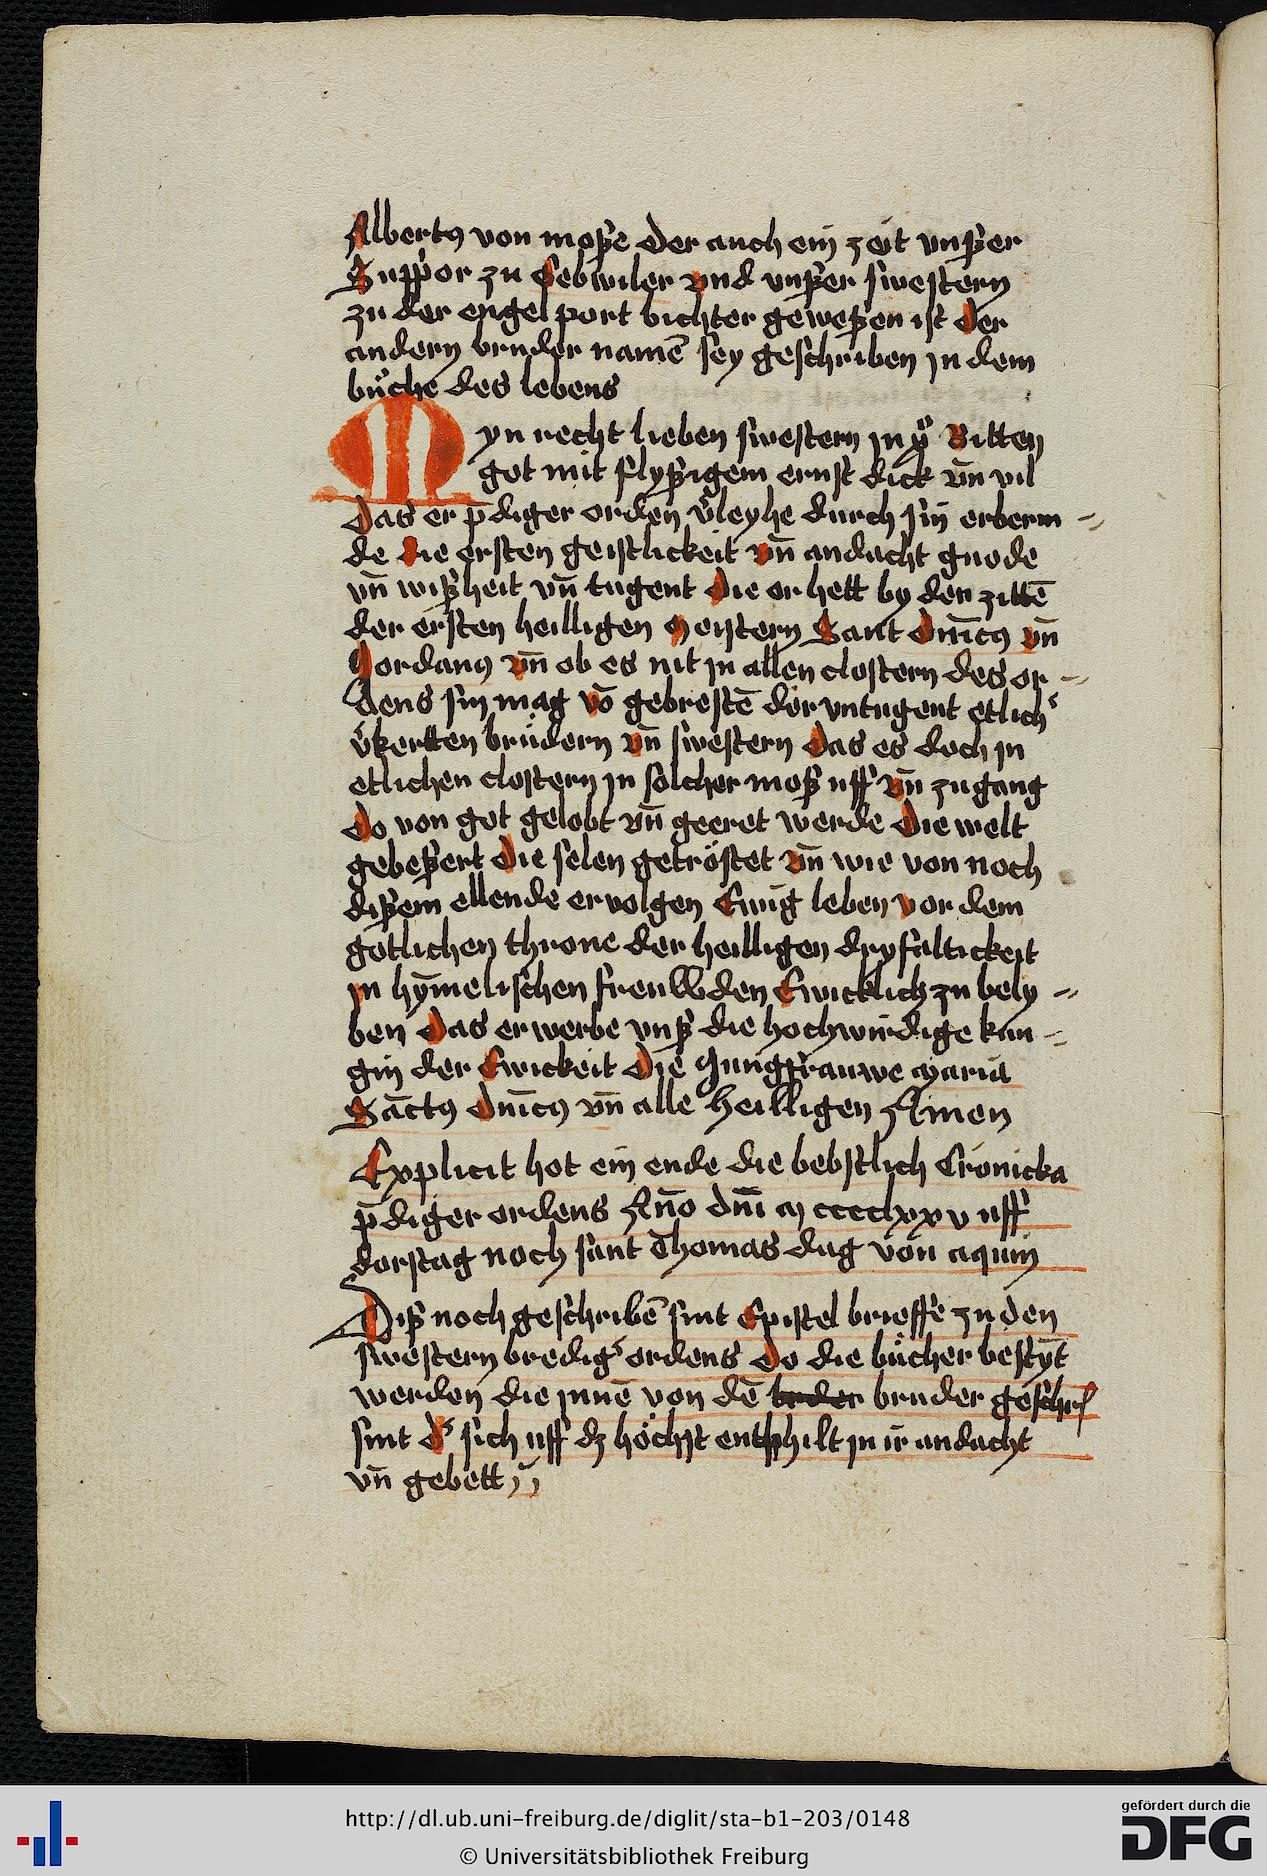 Albertꝯ von moße der auch ein zeit vnßer
Supp̄or zu Gebwiler vnd vnßer swestern
zu der engelport bichter geweßen ist der
andern bruder namē sey geschriben jn dem
bůche des lebens
Myn recht lieben swestern jn Bitten
got mit flyßigem ernst dick vn̄ vil
Das er p̄diger orden v̄leyhe durch sin erberm
de die ersten geistlickeit vn̄ andacht gnode
vn̄ wißheit vn̄ tugent Die er hett by den zittē
der ersten heilligen Meistern Sant Dn̄icꝯ vn̄
Jordanꝯ vn̄ ob es nit jn allen clostern des or
dens sin mag vō gebrestē der vntugent etlich
v̄kertten brůdern vn̄ swestern Das es doch jn
etlichen clostern jn solcher moß uff vn̄ zu gang
Do von got gelobt vn̄ geeret werde Die welt
gebeßert Die selen getröstet vn̄ wie von noch
dißem ellende ervolgen Ewig leben vor dem
gotlichen throne der heilligen dryfaltickeit
jn hȳmelischen freuwden Ewicklich zu bely
ben Das erwerbe vnß die hochwirdige kun
gin der Ewickeit Die Jungfrauwe Maria
Sāctꝯ Dn̄icꝯ vn̄ alle Heilligen Amen
Explicit hot ein ende die bebstlich Cronicka
p̄diger ordens An̄o dn̄i M cccclxxv uff
dorstag noch sant Thomas dag von aquin
Diß noch geschribē sint Epistel brieffe zu den
swestern bredigˢ ordens Do die bůcher bestȳt
werden die jnnē von dē bruder geschrˢ
sint dˢ sich uff dz höchst enthilt jn ir andacht
vn̄ gebett
http://dl.ub.uni-freiburg.de/diglit/sta-b1-203/0148
© Universitätsbibliothek Freiburg
gefördert durch die
DFG